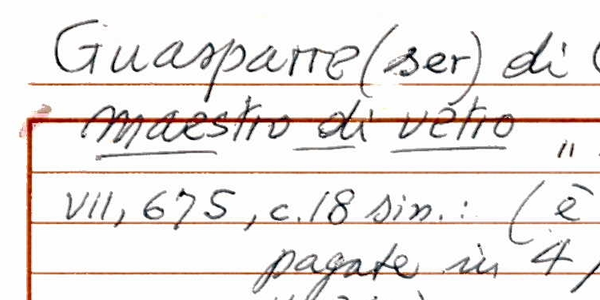 Guasparre (ser) di (
maestro di vetro "
VII, 675, c.18 sin.: (è
pagate in 4